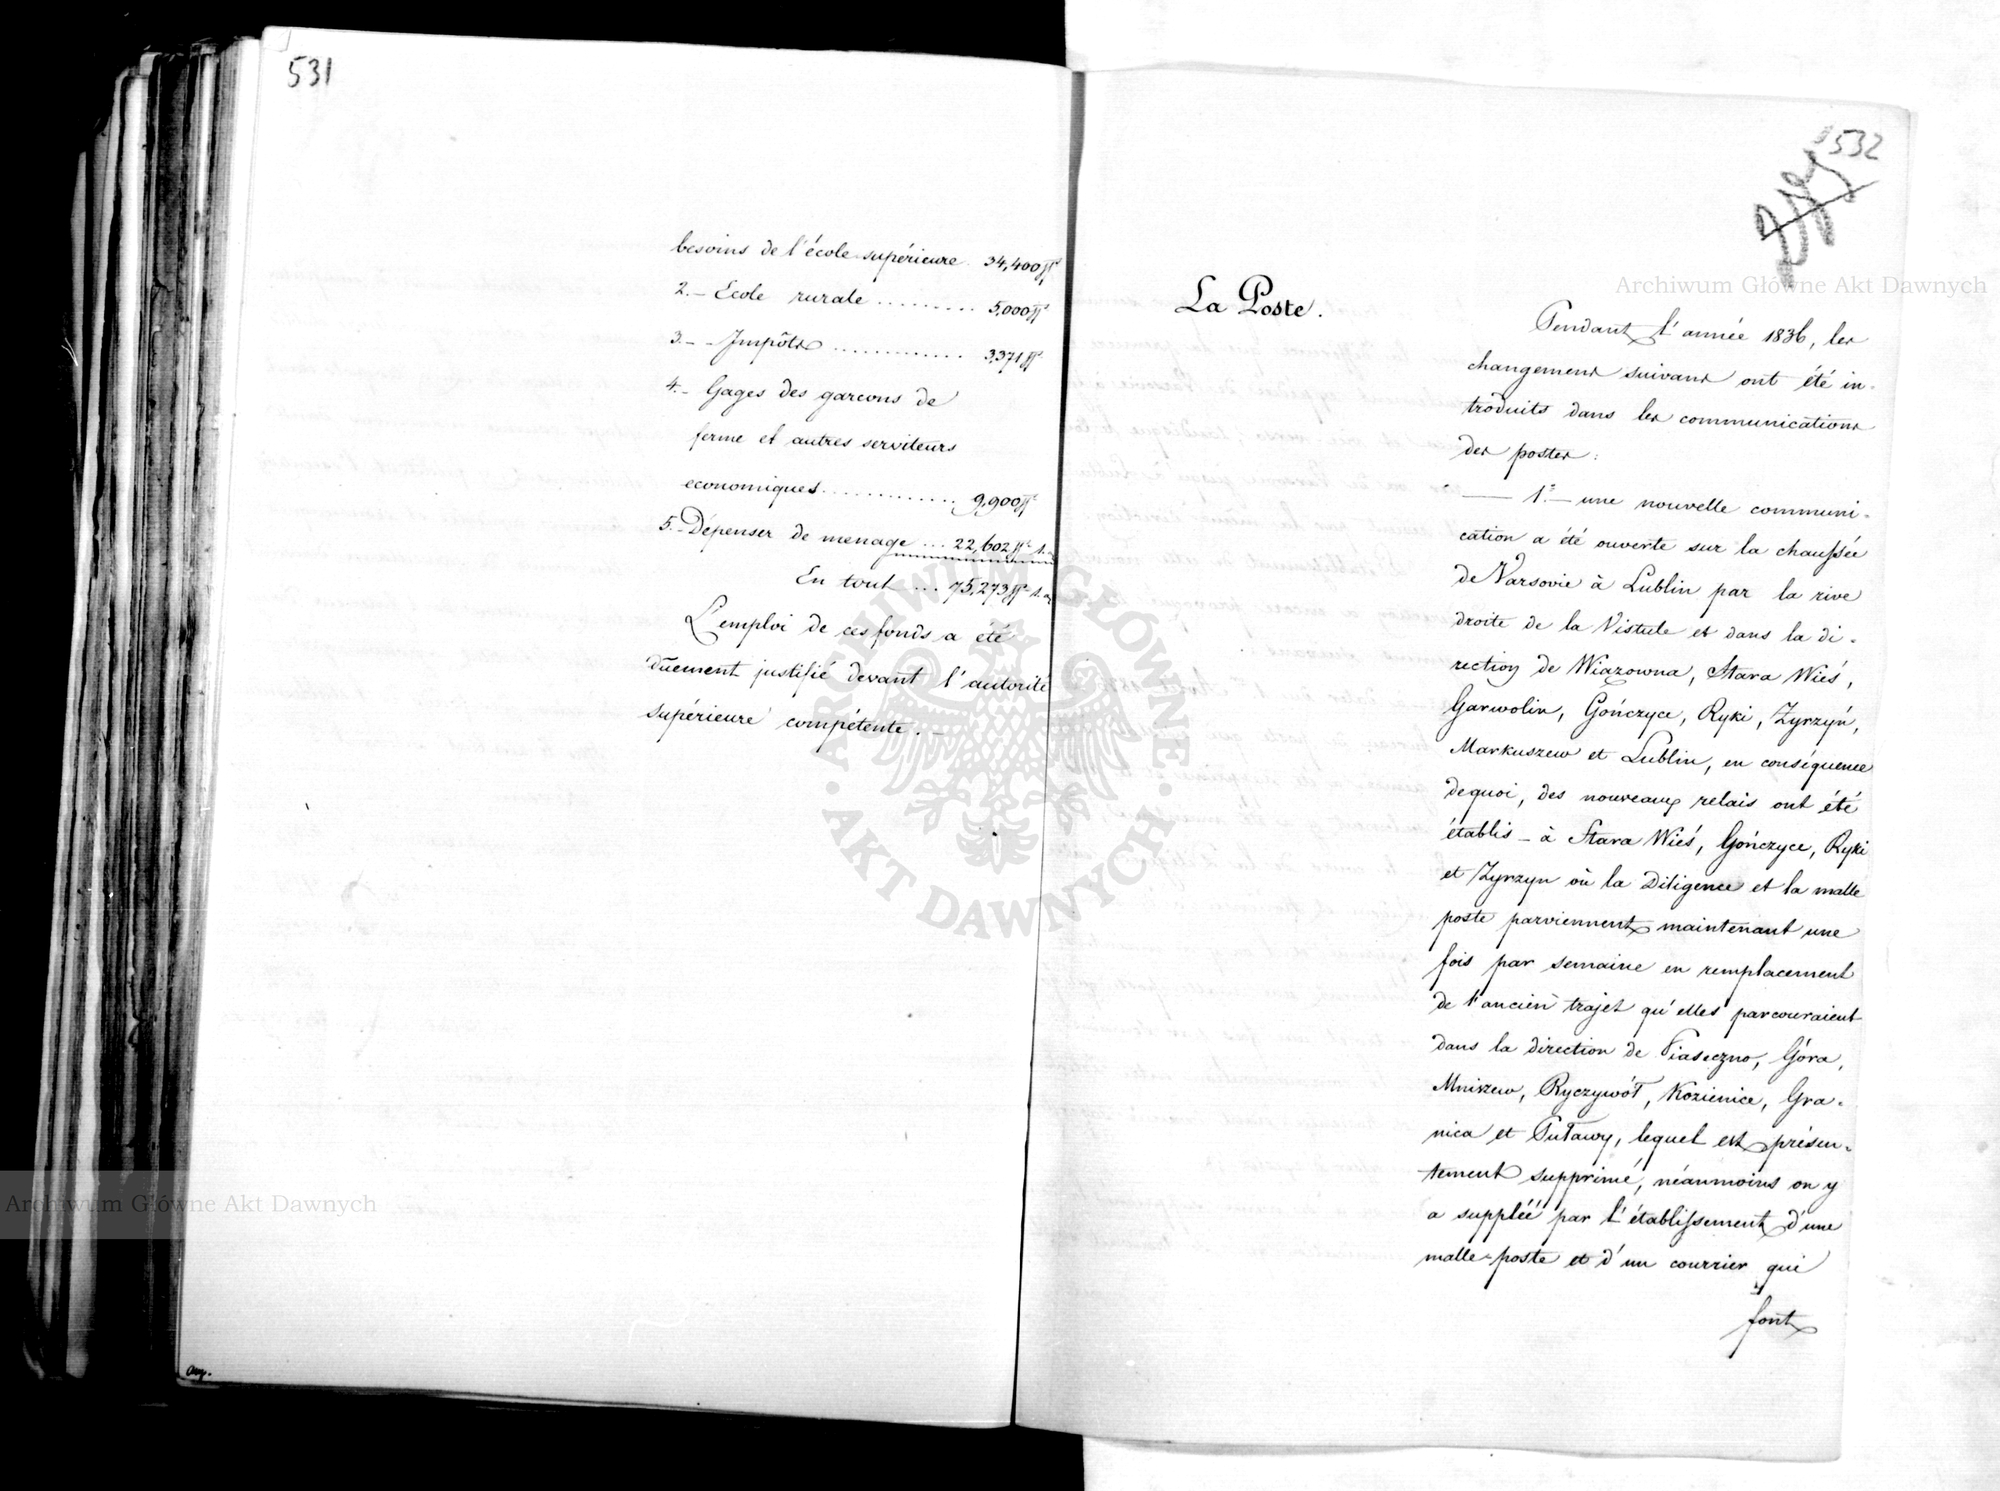 531
besoins de l'école supérieure 34,400 fl
2. – Ecole rurale .......... 5,000 fl
3. – Impôts ............ 3,371 fl
4. – Gages des garcons de
ferme et autres serviteurs
economiques............. 9,900 fl
5. – Dépenses de menage ... 22,602 fl 1.
En tout ... 75,273 fl 1.
L'emploi de ces fonds a été
dûement justifié devant l'autorité
supérieure compétente. –
532
La Poste.
Pendant l'année 1836, les
changements suivans ont été in-
troduits dans les communications
des postes:
1º – une nouvelle communi-
cation a été ouverte sur la chaussée
de Varsovie à Lublin par la rive
droite de la Vistule et dans la di-
rection de Wiazowna, Stara Wieś,
Garwolin, Gończyce, Ryki, Zyrzyń,
Markuszew et Lublin, en conséquence
dequoi, des nouveaux relais ont été
établis – à Stara Wieś, Gończyce, Ryki
et Zyrzyn où la Diligence et la malle
poste parviennent maintenant une
fois par semaine en remplacement
de l'ancien trajet qu'elles parcouraient
dans la direction de Piaseczno, Góra,
Mniszew, Ryczywół, Kozienice, Gra-
nica et Puławy, lequel est présen-
tement supprimé, néanmoins on y
a suppléé par l'établissement d'une
malle-poste et d'un courrier qui
font
Archiwum Główne Akt Dawnych
Archiwum Główne Akt Dawnych
ARCHIWUM GŁÓWNE AKT DAWNYCH